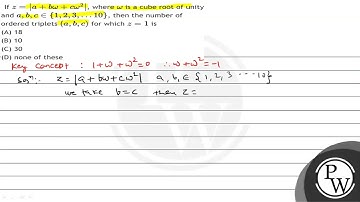 If z = |a + bω + cω²|, where ω is a cube root of unity
and a, b, c ∈ {1, 2, 3, ... 10}, then the number of
ordered triplets (a, b, c) for which z = 1 is
(A) 18
(B) 10
(C) 30
(D) none of these
Key concept : 1+ω+ω²=0 ∴ ω+ω²=-1
Solⁿ:- z = |a+bω+cω²| a, b, c ∈ {1, 2, 3 ... 10}
we take b=c then z =
Pw